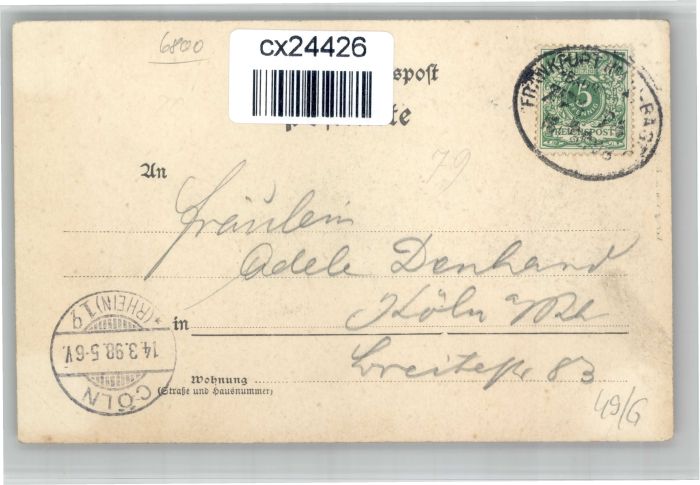 6800
cx24426
spost
te
FRANKFURT
5
REICHSPOST
79
An
Fräulein
Adele Denhard
Köln a/Rh
in
Breitestr 83
Wohnung
(Straße und Hausnummer)
*(RHEIN) 1 q
14.3.98.5-6V.
CÖLN
49/G